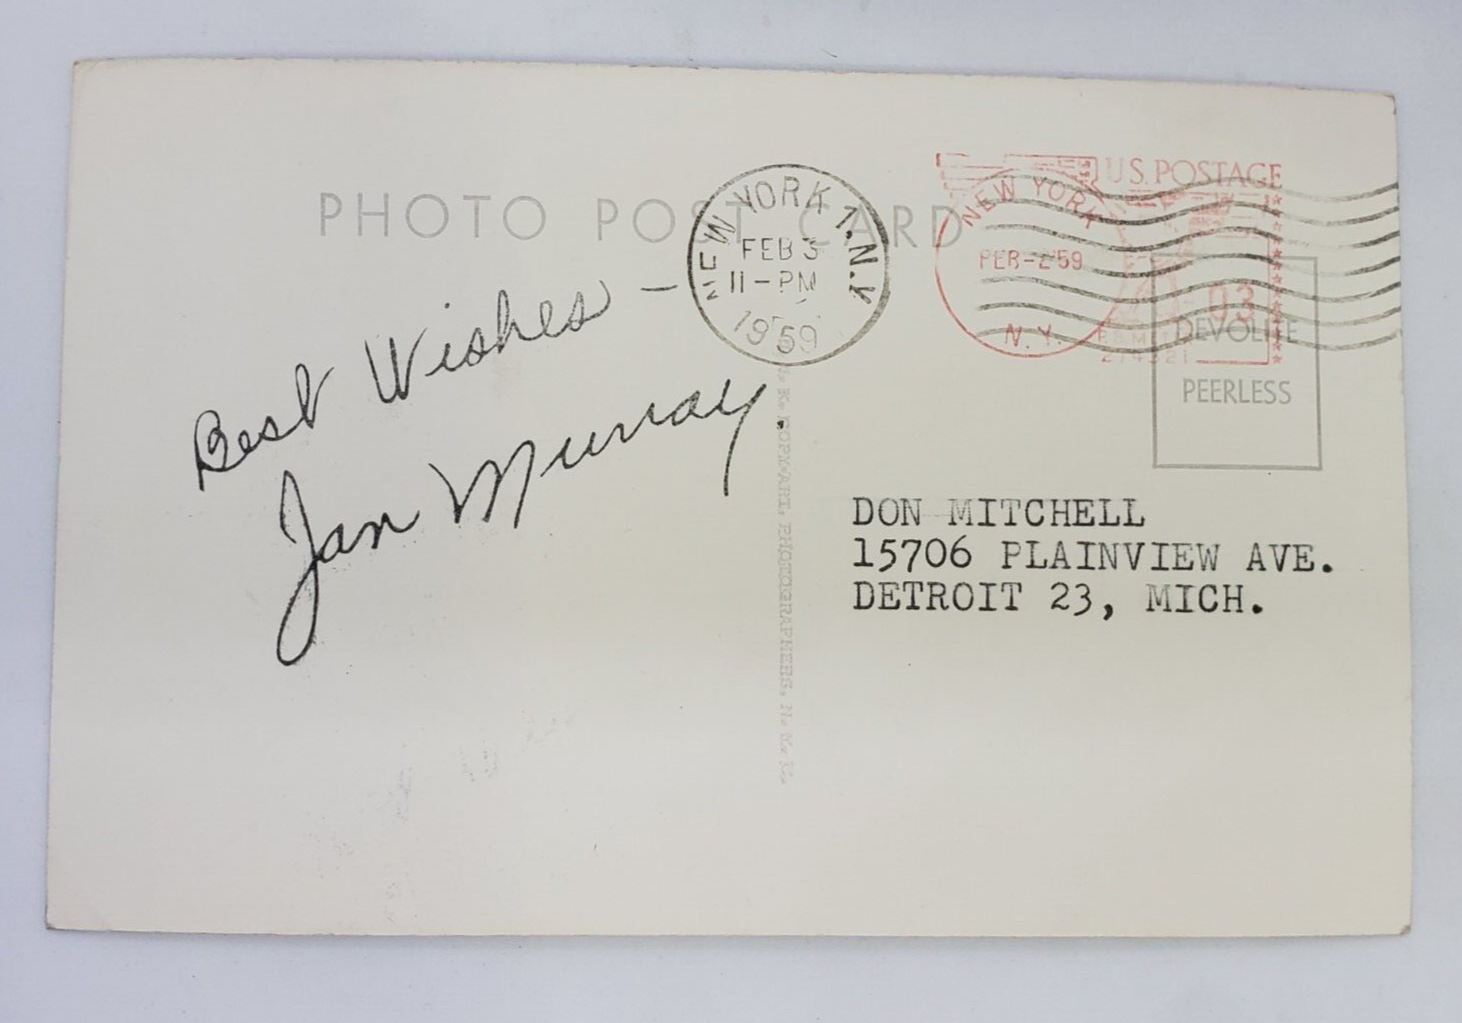 PHOTO POST CARD
NEW YORK 1, N.Y.
FEB 3
11-PM
1959
U.S. POSTAGE
NEW YORK
FEB-2'59
N.Y.
03
DEVOLITE
PEERLESS
Best Wishes -
Jan Murray
COPY-ART, PHOTOGRAPHERS, N. Y. C.
DON MITCHELL
15706 PLAINVIEW AVE.
DETROIT 23, MICH.